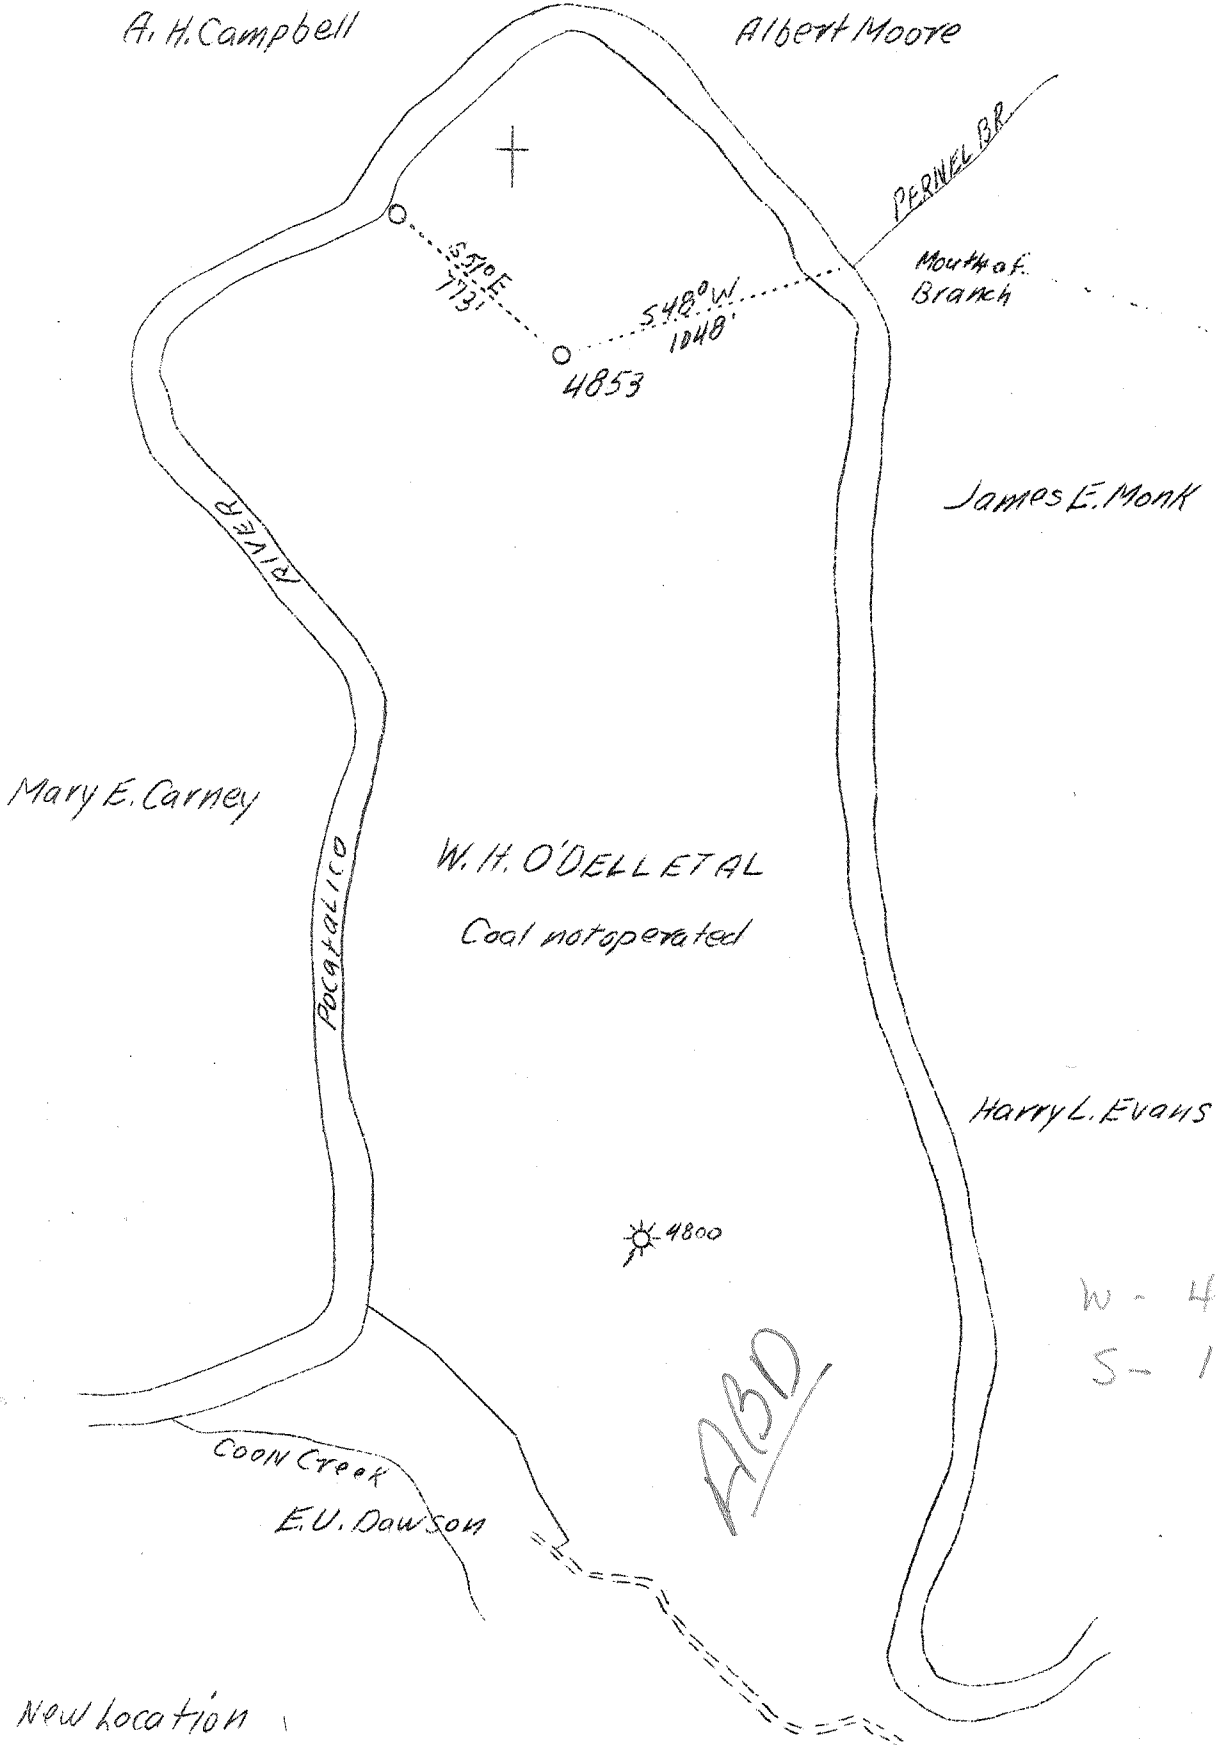 A. H. Campbell
Albert Moore
PERNEL BR.
Mouth of
Branch
S51°E
773'
S48°W
1048'
4853
James E. Monk
RIVER
Mary E. Carney
W. H. O'DELL ET AL
Coal not operated
POCATALICO
Harry L. Evans
4800
W - 4
S - 1
ABD
Coon Creek
E.U. Dawson
New Location